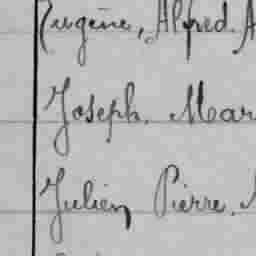 Eugène, Alfred. A
Joseph. Mar
Julien Pierre.